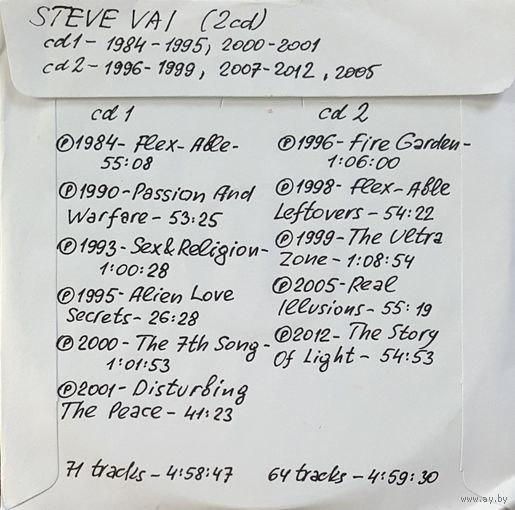 STEVE VAI (2cd)
cd1 - 1984-1995, 2000-2001
cd2 - 1996-1999, 2007-2012, 2005
cd 1
℗1984- Flex-Able-
55:08
℗1990-Passion And
Warfare - 53:25
℗1993-Sex&Religion-
1:00:28
℗1995-Alien Love
Secrets- 26:28
℗2000- The 7th Song-
1:01:53
℗2001- Disturbing
The Peace - 41:23
71 tracks - 4:58:47
cd 2
℗1996-Fire Garden-
1:06:00
℗1998- Flex-Able
Leftovers - 54:22
℗1999-The Ultra
Zone - 1:08:54
℗2005-Real
Illusions - 55:19
℗2012- The Story
Of Light - 54:53
64 tracks - 4:59:30
www.ay.by